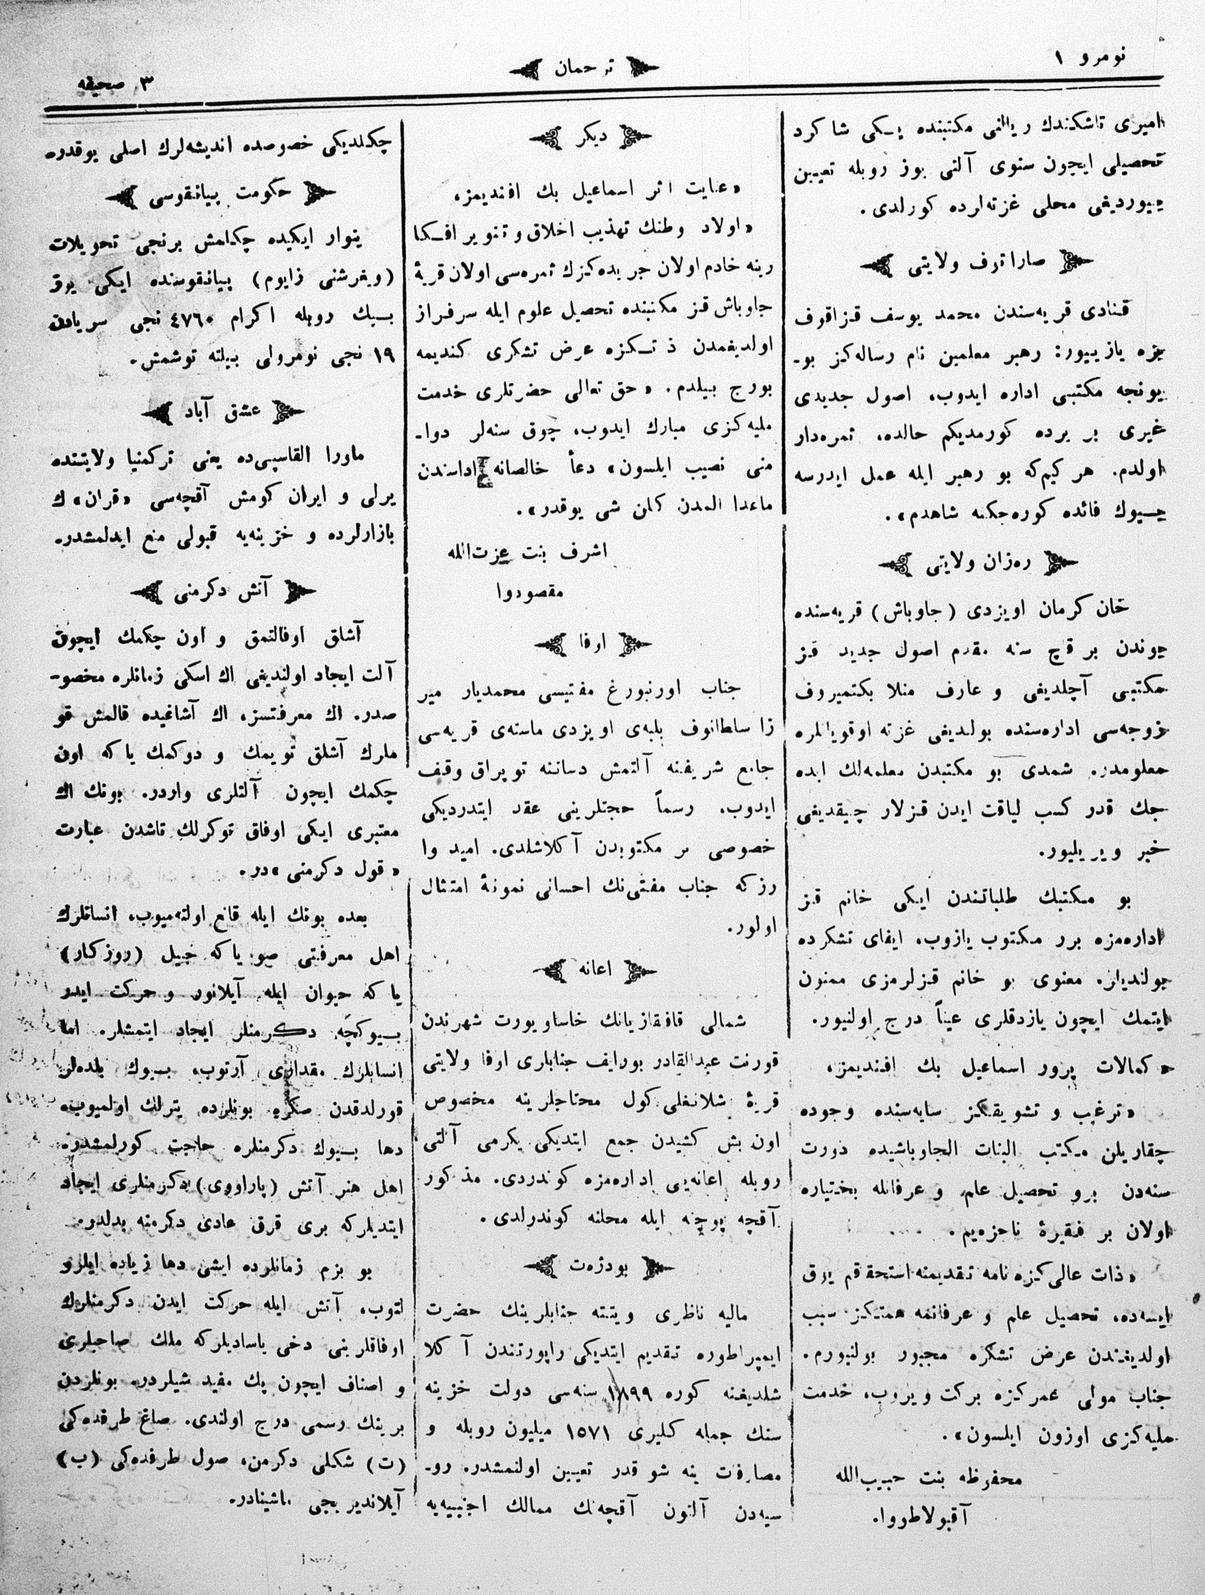 نومرو ١
ترجمان
٣ صحيفه
اميرى تاشكندك ريالنى مكتبنده يكى شاكرد
تحصيلى ايچون سنوى آلتى يوز روبله تعيين
بيورديغى محلى غزته‌لرده كورلدى.
صاراتوف ولايتى
قنادى قريه‌سندن محمد يوسف قزاقوف
بزه يازييور: رهبر معلمين نام رساله‌كز بو-
يونجه مكتبى اداره ايدوب، اصول جديدى
غيرى بر يرده كورمديكم حالده، ثمره‌دار
اولدم. هر كيم‌كه بو رهبر ايله عمل ايدرسه
بيوك فائده كوره‌جكنه شاهدم».
ره‌زان ولايتى
خان كرمان اويزدى (جاوباش) قريه‌سنده
بوندن بر قاچ سنه مقدم اصول جديد قز
مكتبى آچلديغى و عارف منلا بكتميروف
زوجه‌سى اداره‌سنده بولنديغى غزته اوقويانلره
معلومدر. شمدى بو مكتبدن معلمه‌لك ايده
جك قدر كسب لياقت ايدن قزلار چيقديغى
خبر ويريليور.
بو مكتبك طلباتندن ايكى خانم قز
اداره‌مزه برر مكتوب يازوب، ايفاى تشكرده
بولنديلر. معنوى بو خانم قزلرمزى ممنون
ايتمك ايچون يازدقلرى عيناً درج اولنيور.
«كمالات پرور اسماعيل بك افنديمز،
«ترغيب و تشويقكز سايه‌سنده وجوده
چقاريلن مكتب البنات الجاوباشيده دورت
سنه‌دن برو تحصيل علم و عرفانله بختياره
اولان بر فقيرۀ ناچزه‌يم. ....
«ذات عالى‌كزه نامه تقديمنه استحقاقم يوق
ايسه‌ده، تحصيل علم و عرفانمه همتكز سبب
اولديغندن عرض تشكره مجبور بولنيورم.
جناب مولى عمركزه بركت ويروب، خدمت
مليه‌كزى اوزون ايلسون».
محفوظه بنت حبيب‌الله
آقبولاطووا.
ديكر
«عنايت اثر اسماعيل بك افنديمز،
«اولاد وطنك تهذيب اخلاق و تنوير افكا
رينه خادم اولان جريده‌كزك ثمره‌سى اولان قريۀ
جاوباش قز مكتبنده تحصيل علوم ايله سرفراز
اولديغمدن ذاتكزه عرض تشكرى كنديمه
بورج بيلدم. «حق تعالى حضرتلرى خدمت
مليه‌كزى مبارك ايدوب، چوق سنه‌لر دوا-
منى نصيب ايلسون» دعأ خالصانه اداسندن
ماعدا المدن كلن شى يوقدر».
اشرف بنت عزت‌الله
مقصودوا
اوفا
جناب اورنبورغ مفتيسى محمديار مير
زا سلطانوف بلبه‌ى اويزدى ماسته‌ى قريه‌سى
جامع شريفنه آلتمش دساتنه توپراق وقف
ايدوب، رسماً حجتلرينى عقد ايتدرديكى
خصوصى بر مكتوبدن آكلاشلدى. اميد وا
رز كه جناب مفتى‌نك احسانى نمونۀ امتثال
اولور.
اعانه
شمالى قافقازيانك خاساويورت شهرندن
قورنت عبدالقادر بورايف جنابلرى اوفا ولايتى
قريۀ شلانغلى‌كول محتاجلرينه مخصوص
اون بش كشيدن جمع ايتديكى يكرمى آلتى
روبله اعانه‌يى اداره‌مزه كوندردى. مذكور
آقچه پوچته ايله محلنه كوندرلدى.
بودژه‌ت
ماليه ناظرى ويتته جنابلرينك حضرت
ايمپراطوره تقديم ايتديكى راپورتندن آكلا
شلديغنه كوره ١٨٩٩ سنه‌سى دولت خزينه
سنك جمله كليرى ١٥٧١ ميليون روبله و
مصارفات ينه شو قدر تعيين اولنمشدر. رو-
سيه‌دن آلتون آقچه‌نك ممالك اجنبيه‌يه
چكلديكى خصوصده انديشه‌لرك اصلى يوقدر.
حكومت بيانقوسى
ينوار ايكيده چكلمش برنجى تحويلات
(ويغرشنى زايوم) بيانقوسنده ايكى يوز
بيك روبله اكرام ٤٧٦٠ نجى سريادن
١٩ نجى نومرولى بيلته توشمش.
عشق آباد
ماورا القاسپى‌ده يعنى تركمنيا ولايتنده
يرلى و ايران كومش آقچه‌سى «قران»ك
بازارلرده و خزينه‌يه قبولى منع ايدلمشدر.
آتش دكرمنى
آشلق اوفالتمق و اون چكمك ايچون
آلت ايجاد اولنديغى اك اسكى زمانلره مخصو-
صدر. اك معرفتسز، اك آشاغيده قالمش قو
ملرك آشلق تويمك و دوكمك ياكه اون
چكمك ايچون آلتلرى واردر. بونك اك
معتبرى ايكى اوفاق توكرلك تاشدن عبارت
«قول دكرمنى»در.
بعده بونك ايله قانع اولنه‌ميوب، انسانلرك
اهل معرفتى صو، ياكه جيل (روزكار)
ياكه حيوان ايله آيلانور و حركت ايدر
بيوكچه دكرمنلر ايجاد ايتمشلر. اما
انسانلرك مقدارى آرتوب، بيوك بلده‌لر
قورلدقدن صكره بونلرده يترلك اولميوب،
دها بيوك دكرمنلره حاجت كورلمشدر.
اهل هنر آتش (پاراووى) دكرمنلرى ايجاد
ايتديلركه برى قرق عادى دكرمنه بدلدر.
بو بزم زمانلرده ايشى دها زياده ايلرو
لتوب، آتش ايله حركت ايدن دكرمنلرك
اوفاقلرينى دخى ياساديلركه ملك صاحبلرى
و اصناف ايچون پك مفيد شيلردر. بونلردن
برينك رسمى درج اولندى. صاغ طرفده‌كى
(ت) شكلى دكرمن، صول طرفده‌كى (ب)
آيلانديريجى ماشينادر.